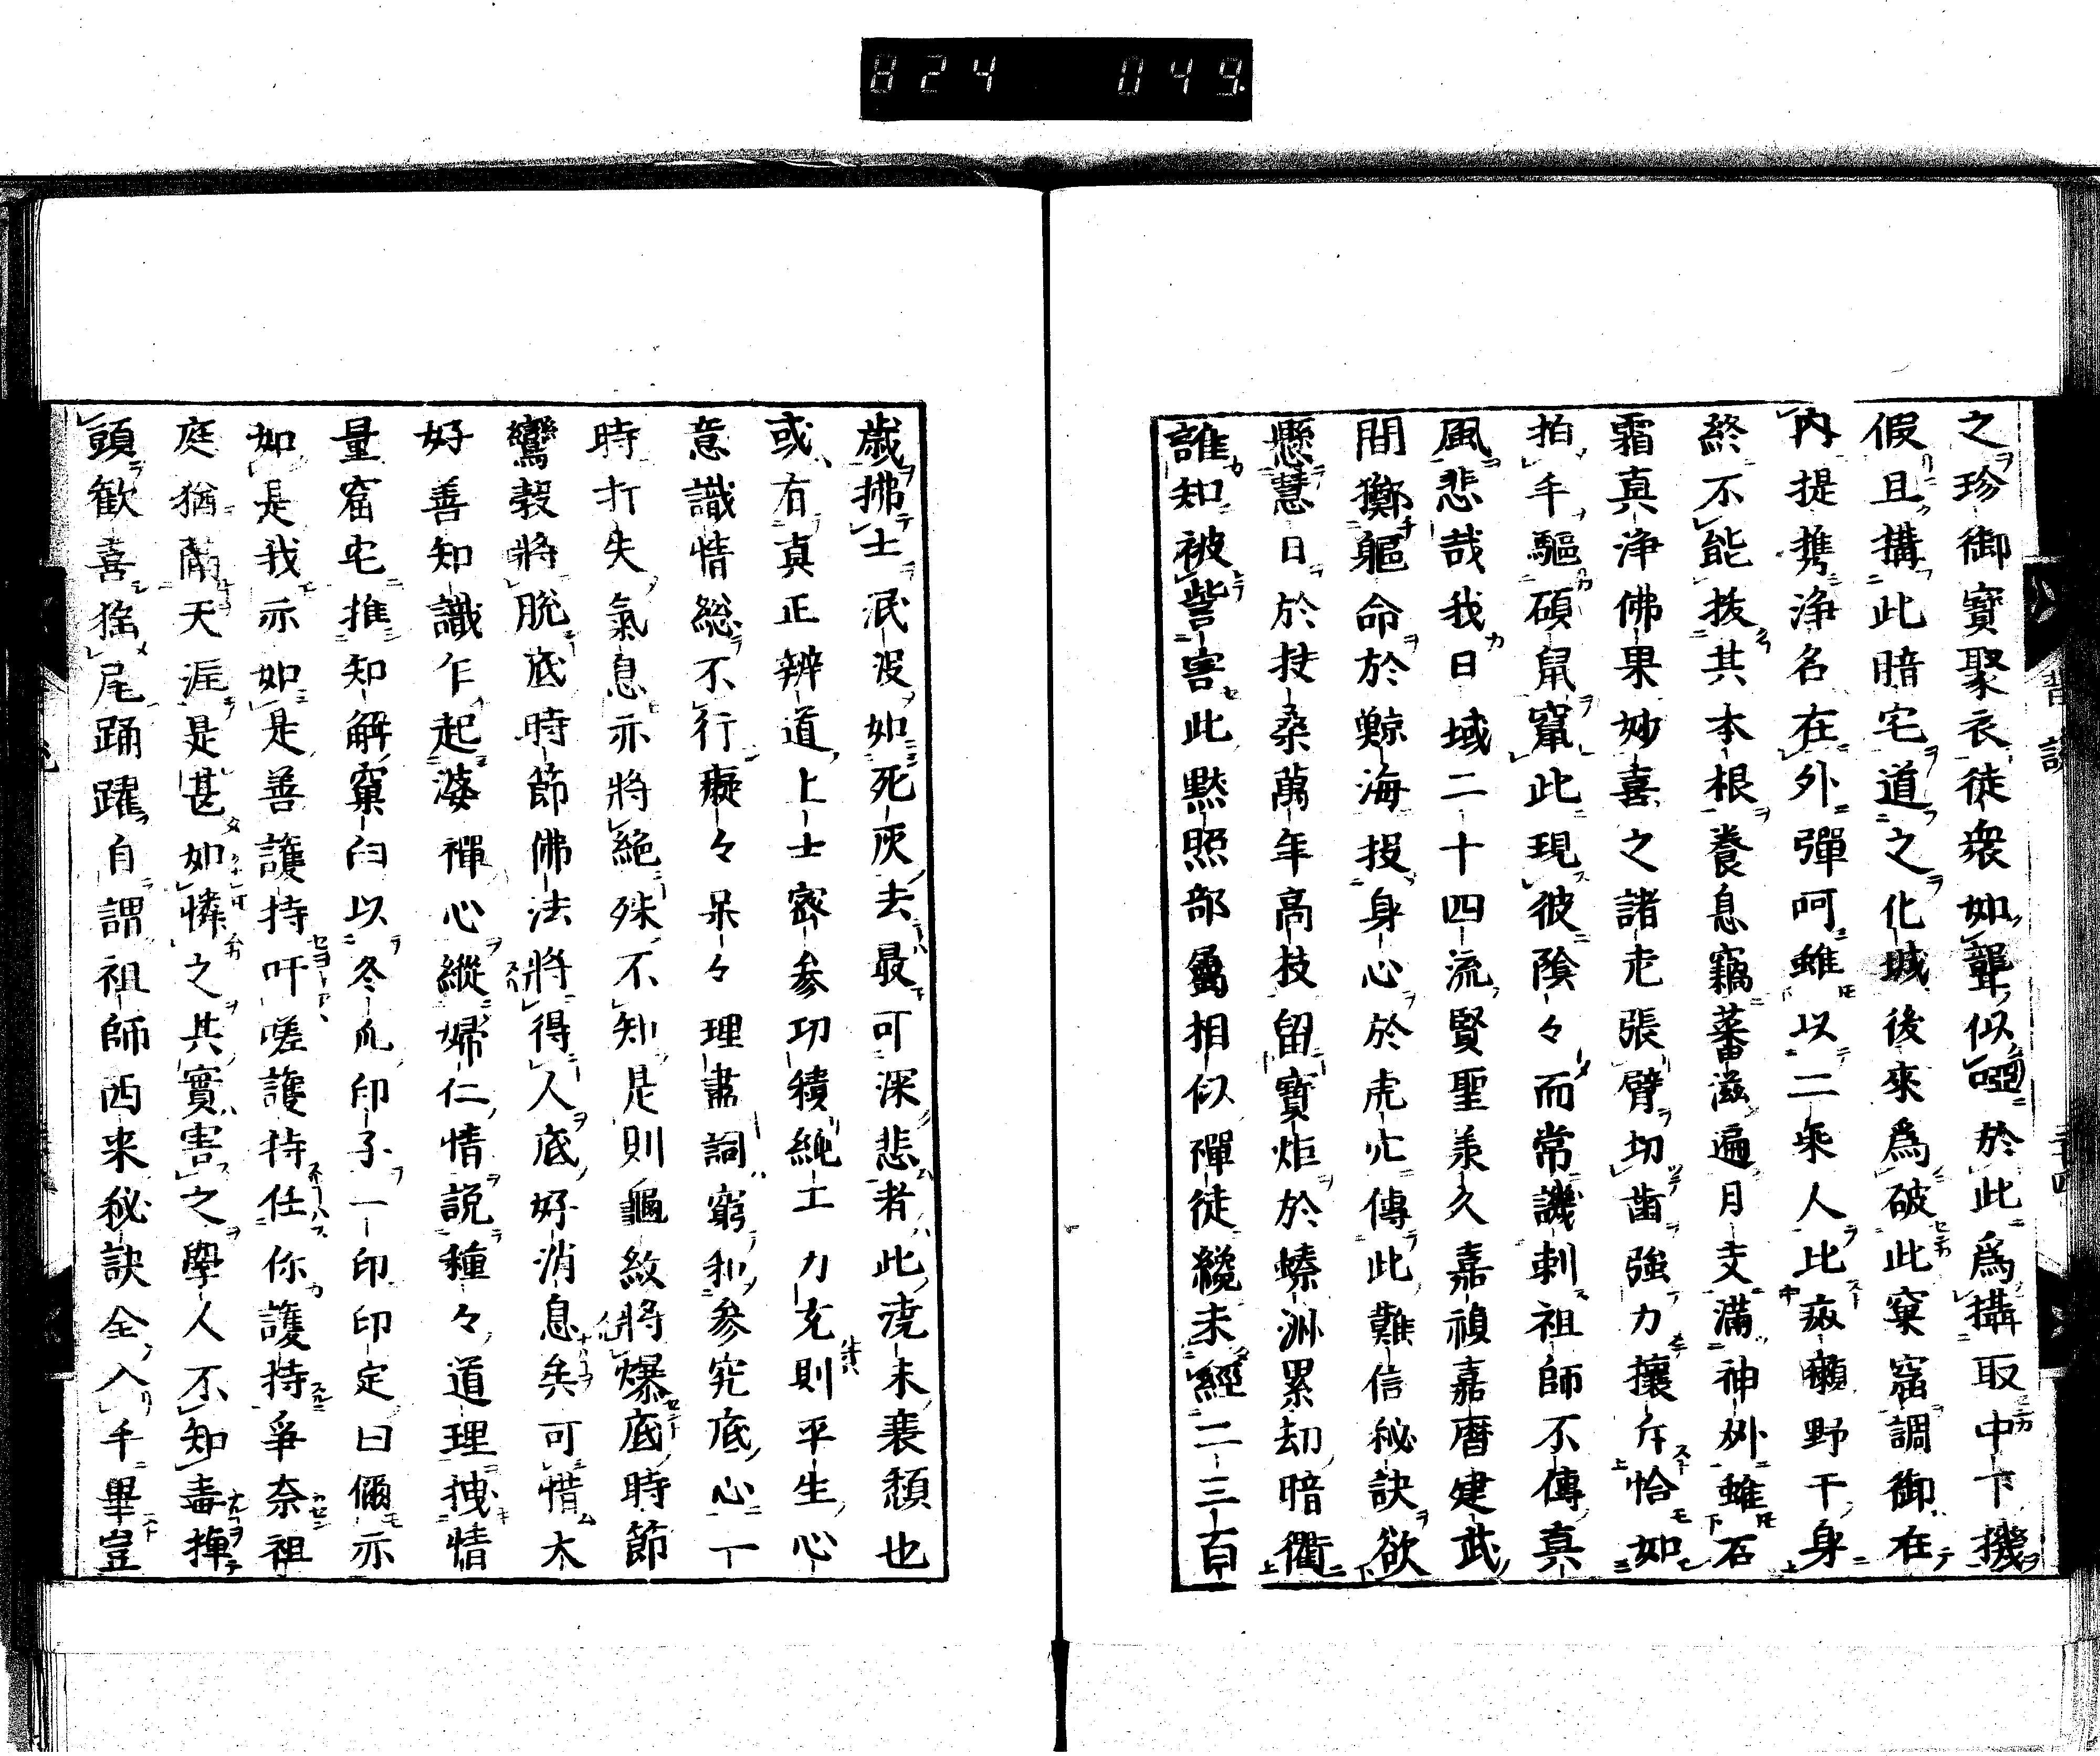 824 049
之珍御寶聚衣徒衆如聾似啞於此爲攝取中下機
假且搆此暗宅道之化城後來爲破此窠窟調御在
内提携淨名在外彈呵雖以二乘人比疥癩野干身
終不能拔其本根養息竊蕃滋遍月支滿神州雖石
霜真淨佛果妙喜之諸老張臂切齒強力攘斥恰如
拍手驅碩鼠竄此現彼陰々而常譏刺祖師不傳真
風悲哉我日域二十四流賢聖承久嘉禎嘉曆建武
間擲軀命於鯨海投身心於虎穴傳此難信秘訣欲
懸慧日於扶桑萬年高枝留寶炬於蜻洲累劫暗衢
誰知被訾害此黙照部屬相似禪徒纔未經二三百
歳拂土泯没如死灰去最可深悲者此澆末衰頽也
或有真正辨道上士密参功積純工力充則平生心
意識情総不行癡々呆々理盡詞窮和参究底心一
時打失氣息亦將絶殊不知是則龜紋將爆底時節
鸞殼將脱底時節佛法將得人底好消息矣可惜太
好善知識乍起婆禪心縱婦仁情説種々道理拽情
量窟宅推知解窠臼以冬瓜印子一印印定曰儞亦
如是我亦如是善護持吁嗟護持任你護持爭奈祖
庭猶隔天涯是甚如憐之其實害之學人不知毒揮
頭歓喜搖尾踊躍自謂祖師西来秘訣全入千畢豈